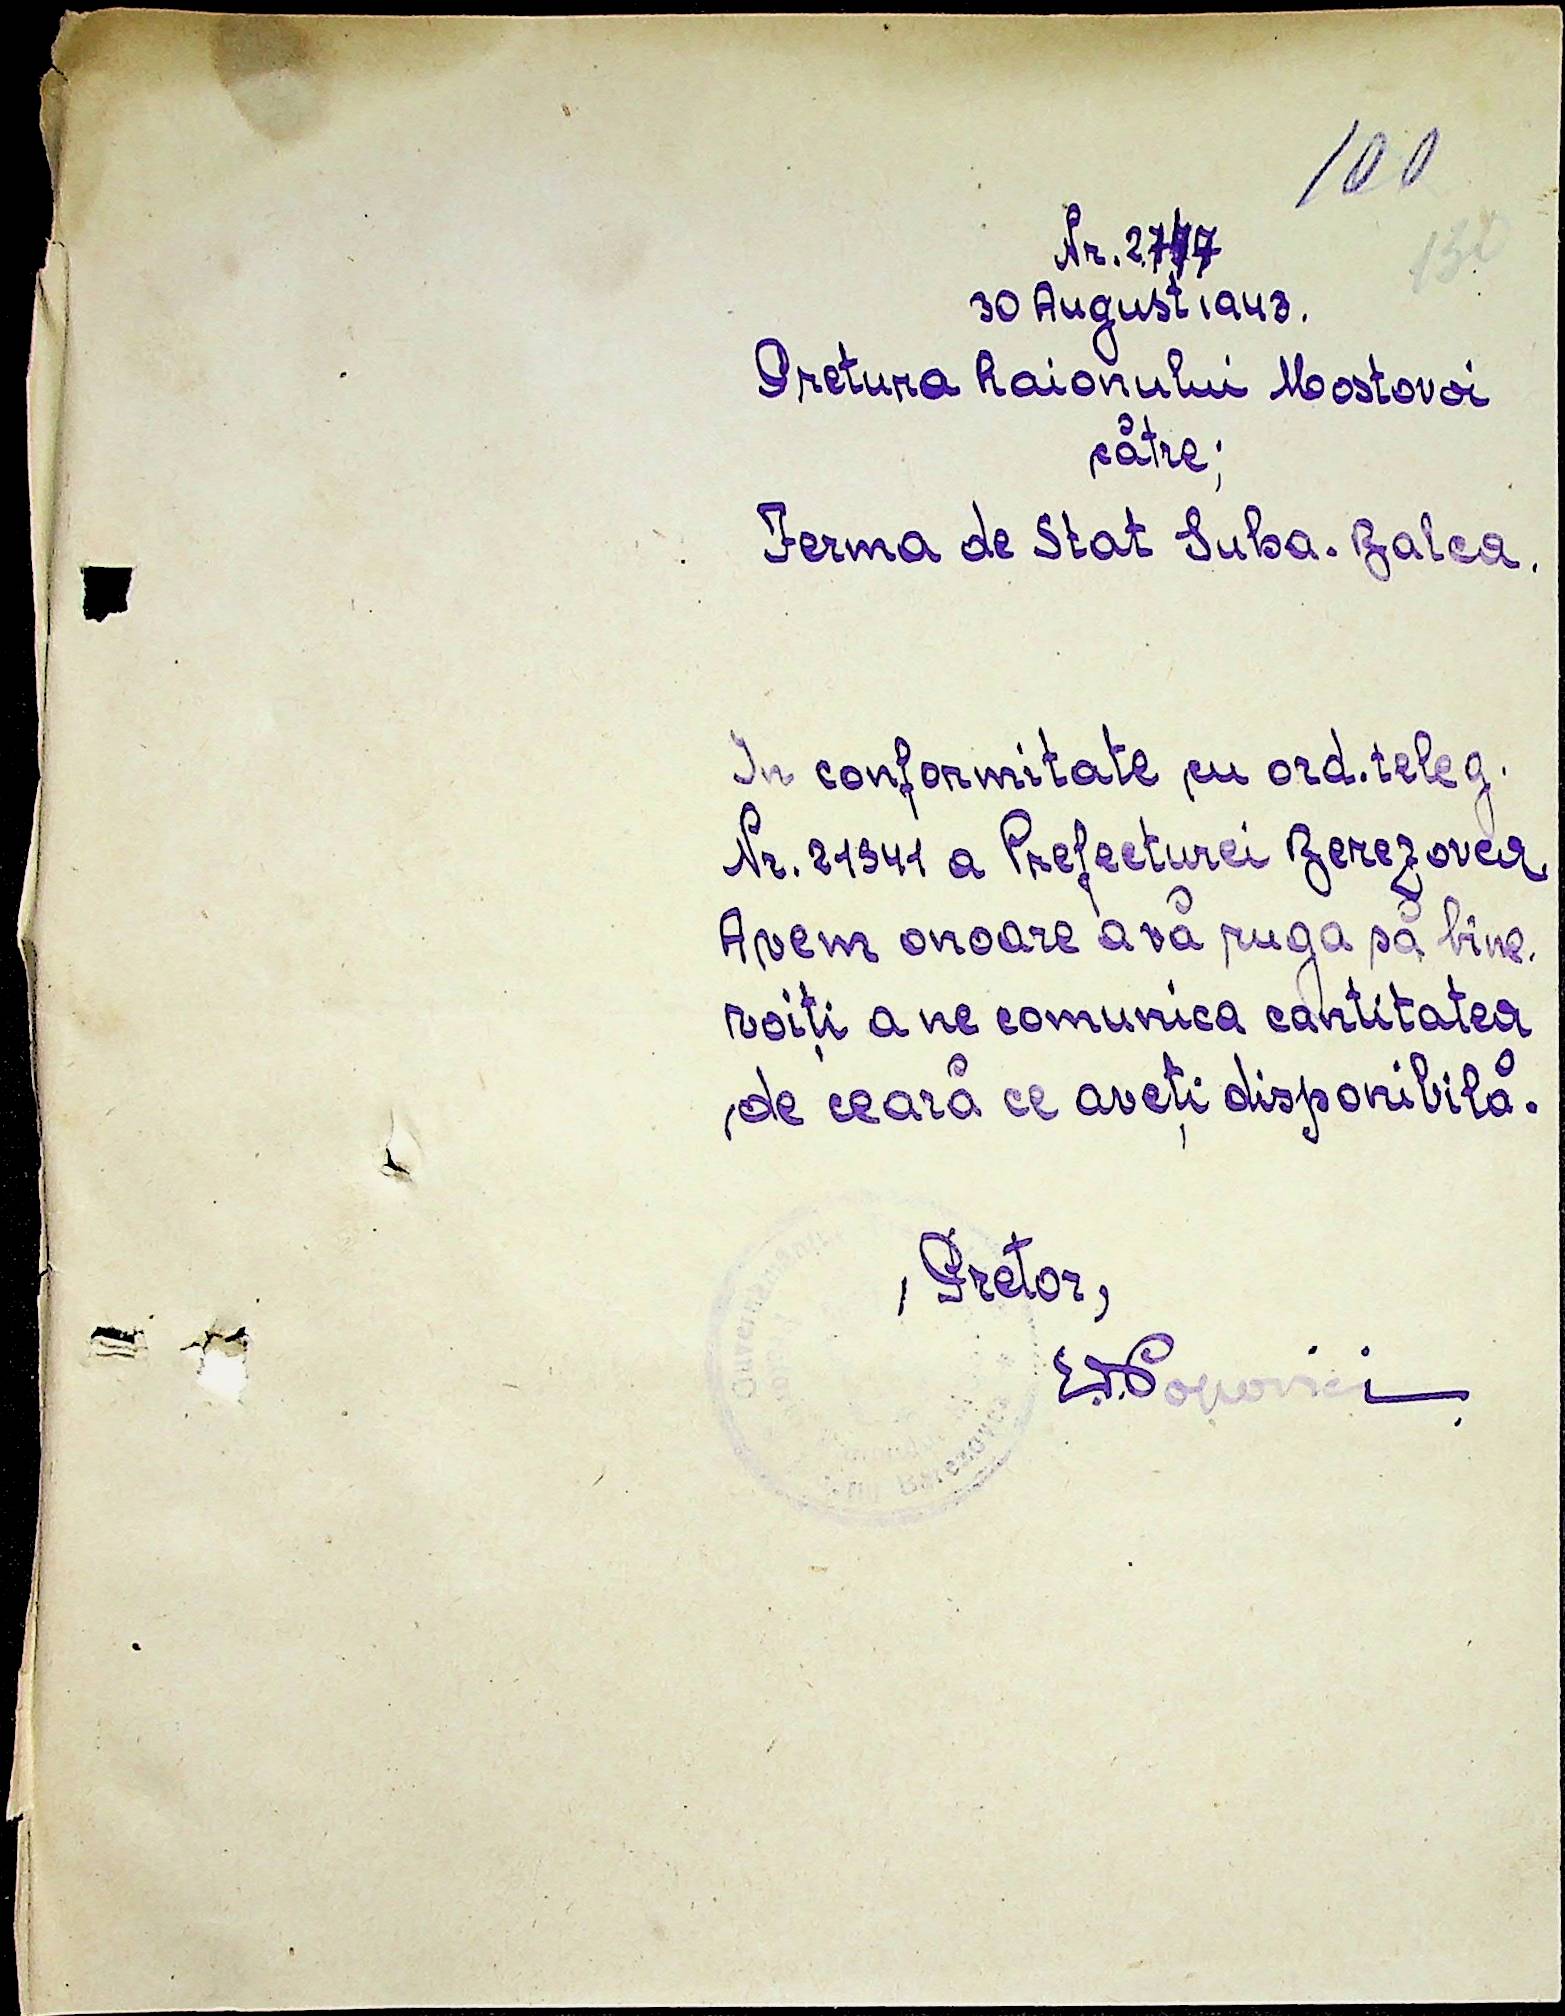 100
130
Nr. 2777
30 August 1943.
Pretura Raionului Mostovoi
către;
Ferma de Stat Suba. Balca.
In conformitate cu ord. teleg.
Nr. 21341 a Prefecturei Berezovca
Avem onoare a vă ruga să bine.
voiți a ne comunica cantitatea
de ceară ce aveți disponibilă.
Pretor,
Popovici
Guvernământul
Berezovca